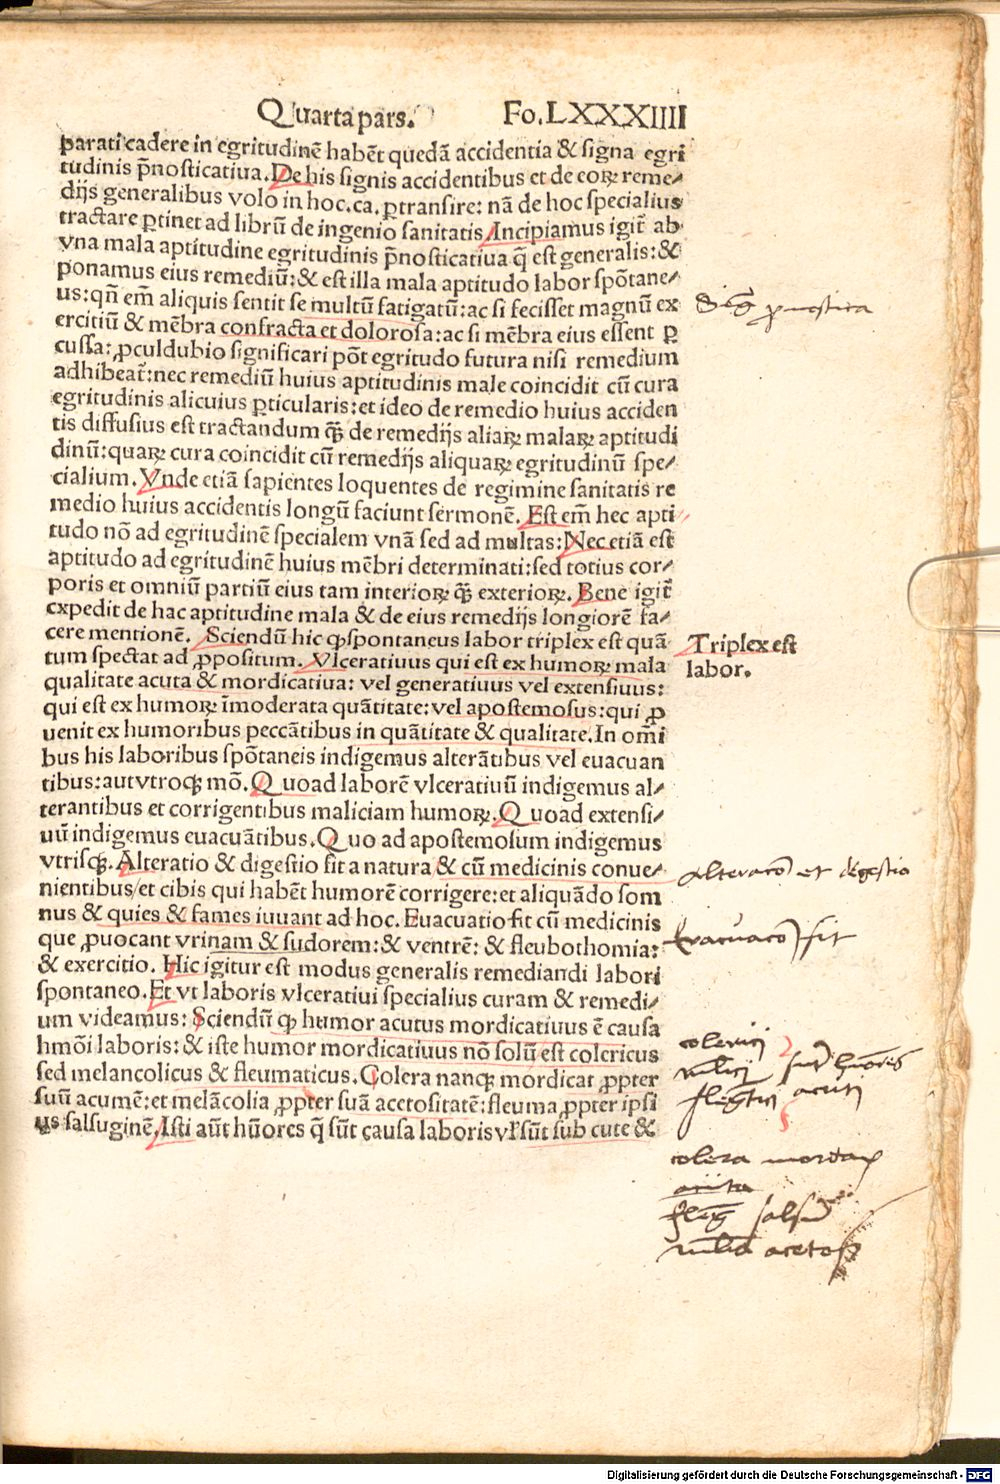 Quarta pars. Fo. LXXXIIII
parati cadere in egritudinē habēt quedā accidentia & signa egri
tudinis p̄nosticatiua. De his signis accidentibus et de eoꝝ reme⸗
dijs generalibus volo in hoc.ca. ꝑtransire: nā de hoc specialius
tractare ꝑtinet ad librū de ingenio sanitatis. Incipiamus igit̄ ab
vna mala aptitudine egritudinis p̄nosticatiua q̄ est generalis: &
ponamus eius remediū: & est illa mala aptitudo labor spōtane⸗
us: qn̄ em̄ aliquis sentit se multū fatigatū: ac si fecisset magnū ex
ercitiū & mēbra confracta et dolorosa: ac si mēbra eius essent ꝑ
cussa: ꝓculdubio significari pōt egritudo futura nisi remedium
adhibeat̄: nec remediū huius aptitudinis male coincidit cū cura
egritudinis alicuius ꝑticularis: et ideo de remedio huius acciden
tis diffusius est tractandum q̄ȝ de remedijs aliaꝝ malaꝝ aptitudi
dinū: quaꝝ cura coincidit cū remedijs aliquaꝝ egritudinū spe⸗
cialium. Vnde etiā sapientes loquentes de regimine sanitatis re
medio huius accidentis longū faciunt sermonē. Est em̄ hec apti
tudo nō ad egritudinē specialem vnā sed ad multas: Nec etiā est
aptitudo ad egritudinē huius mēbri determinati: sed totius cor⸗
poris et omniū partiū eius tam interioꝝ q̄ȝ exterioꝝ. Bene igit̄
expedit de hac aptitudine mala & de eius remedijs longiorē fa⸗
cere mentionē. Sciendū hic ꝙ spontaneus labor triplex est quā
tum spectat ad ꝓpositum. Vlceratiuus qui est ex humoꝝ mala
qualitate acuta & mordicatiua: vel generatiuus vel extensiuus:
qui est ex humoꝝ īmoderata quātitate: vel apostemosus: qui ꝓ
uenit ex humoribus peccātibus in quātitate & qualitate. In om̄i
bus his laboribus spōtaneis indigemus alterātibus vel euacuan
tibus: aut vtroqȝ mō. Quoad laborē vlceratiuū indigemus al⸗
terantibus et corrigentibus maliciam humoꝝ. Quoad extensi⸗
uū indigemus euacuātibus. Quo ad apostemosum indigemus
vtrisqȝ. Alteratio & digestio fit a natura & cū medicinis conue⸗
nientibus/et cibis qui habēt humorē corrigere: et aliquādo som
nus & quies & fames iuuant ad hoc. Euacuatio fit cū medicinis
que ꝓuocant vrinam & sudorem: & ventrē: & fleubothomia:
& exercitio. Hic igitur est modus generalis remediandi labori
spontaneo. Et vt laboris vlceratiui specialius curam & remedi⸗
um videamus: Sciendū ꝙ humor acutus mordicatiuus ē causa
hmōi laboris: & iste humor mordicatiuus nō solū est colericus
sed melancolicus & fleumaticus. Colera nanqȝ mordicat ꝓpter
suū acumē: et melācolia ꝓpter suā acetositatē: fleuma ꝓpter ipsi
us salsuginē. Isti aūt hūores q̄ sūt causa laboris vl̄ sūt sub cute &
Triplex est
labor.
alteracō et digestio
Evacuacō fit
colerici
flegtici
acuti
colera mordax
fleḡ salsū